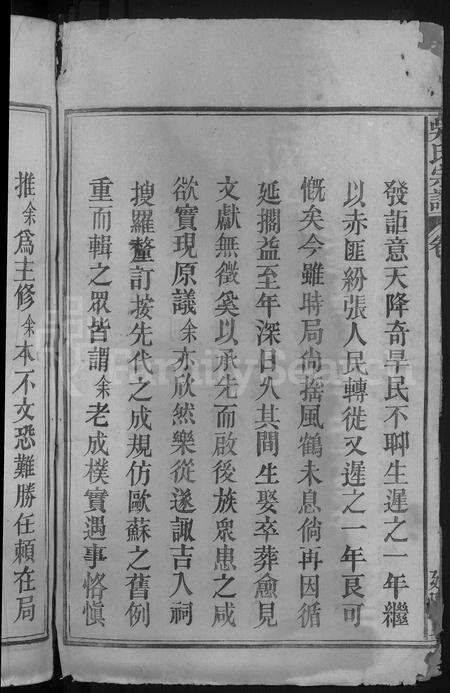 發詎意天降奇旱民不聊生遲之一年繼
以赤匪紛張人民轉徙又遲之一年良可
慨矣今雖時局尙
風鶴未息倘再因循
延擱益至年深日久其間生娶卒葬愈見
文獻無徵奚以承先而啟後族衆患之咸
欲實現原議余亦欣然樂從遂諏吉入祠
搜羅釐訂按先代之成規仿歐蘇之舊例
重而輯之眾皆謂余老成樸實遇事恪慎
推余爲主修余本不文恐難勝任賴在局
吳氏宗譜
卷
FamilySearch